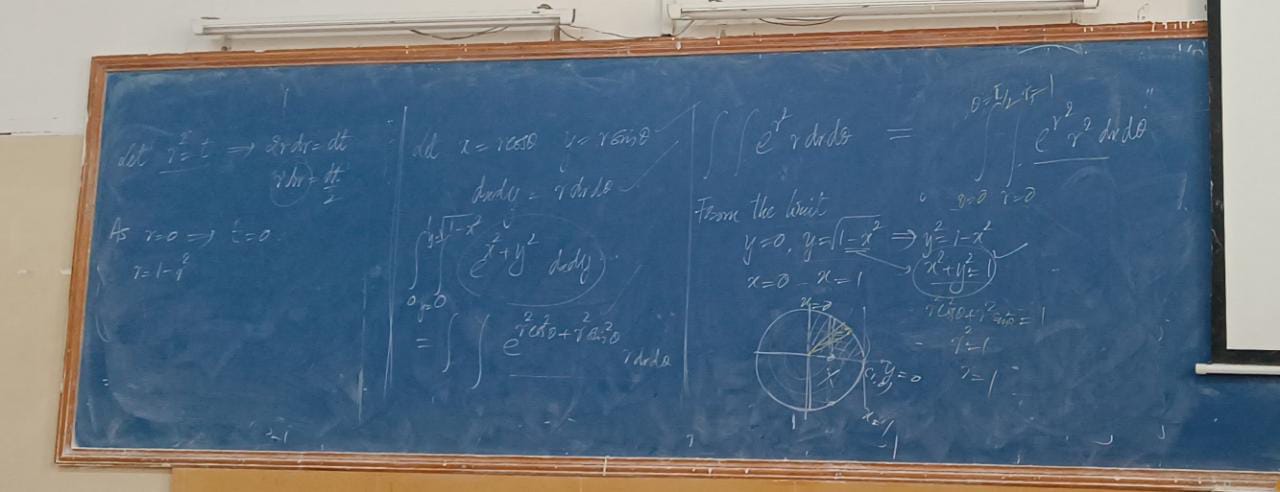 Let r² = t ⇒ 2rdr = dt
rdr = dt/2
As r=0 ⇒ t=0
r=1-r²
Let x = rcosθ y = rsinθ
dxdy = rdrdθ
∫₀¹ ∫_{y=0}^{y=√1-x²} e^{x²+y²} dxdy
= ∫∫ e^{r²cos²θ+r²sin²θ} rdrdθ
∫∫ e^{r²} r drdθ = ∫_{θ=0}^{θ=π/2} ∫_{r=0}^{r=1} e^{r²} r² drdθ
From the limit
y=0, y=√1-x² ⇒ y²=1-x²
x=0 x=1 x²+y²=1
r²cos²θ+r²sin²θ=1
r²=1
r=1
x=0
y=0